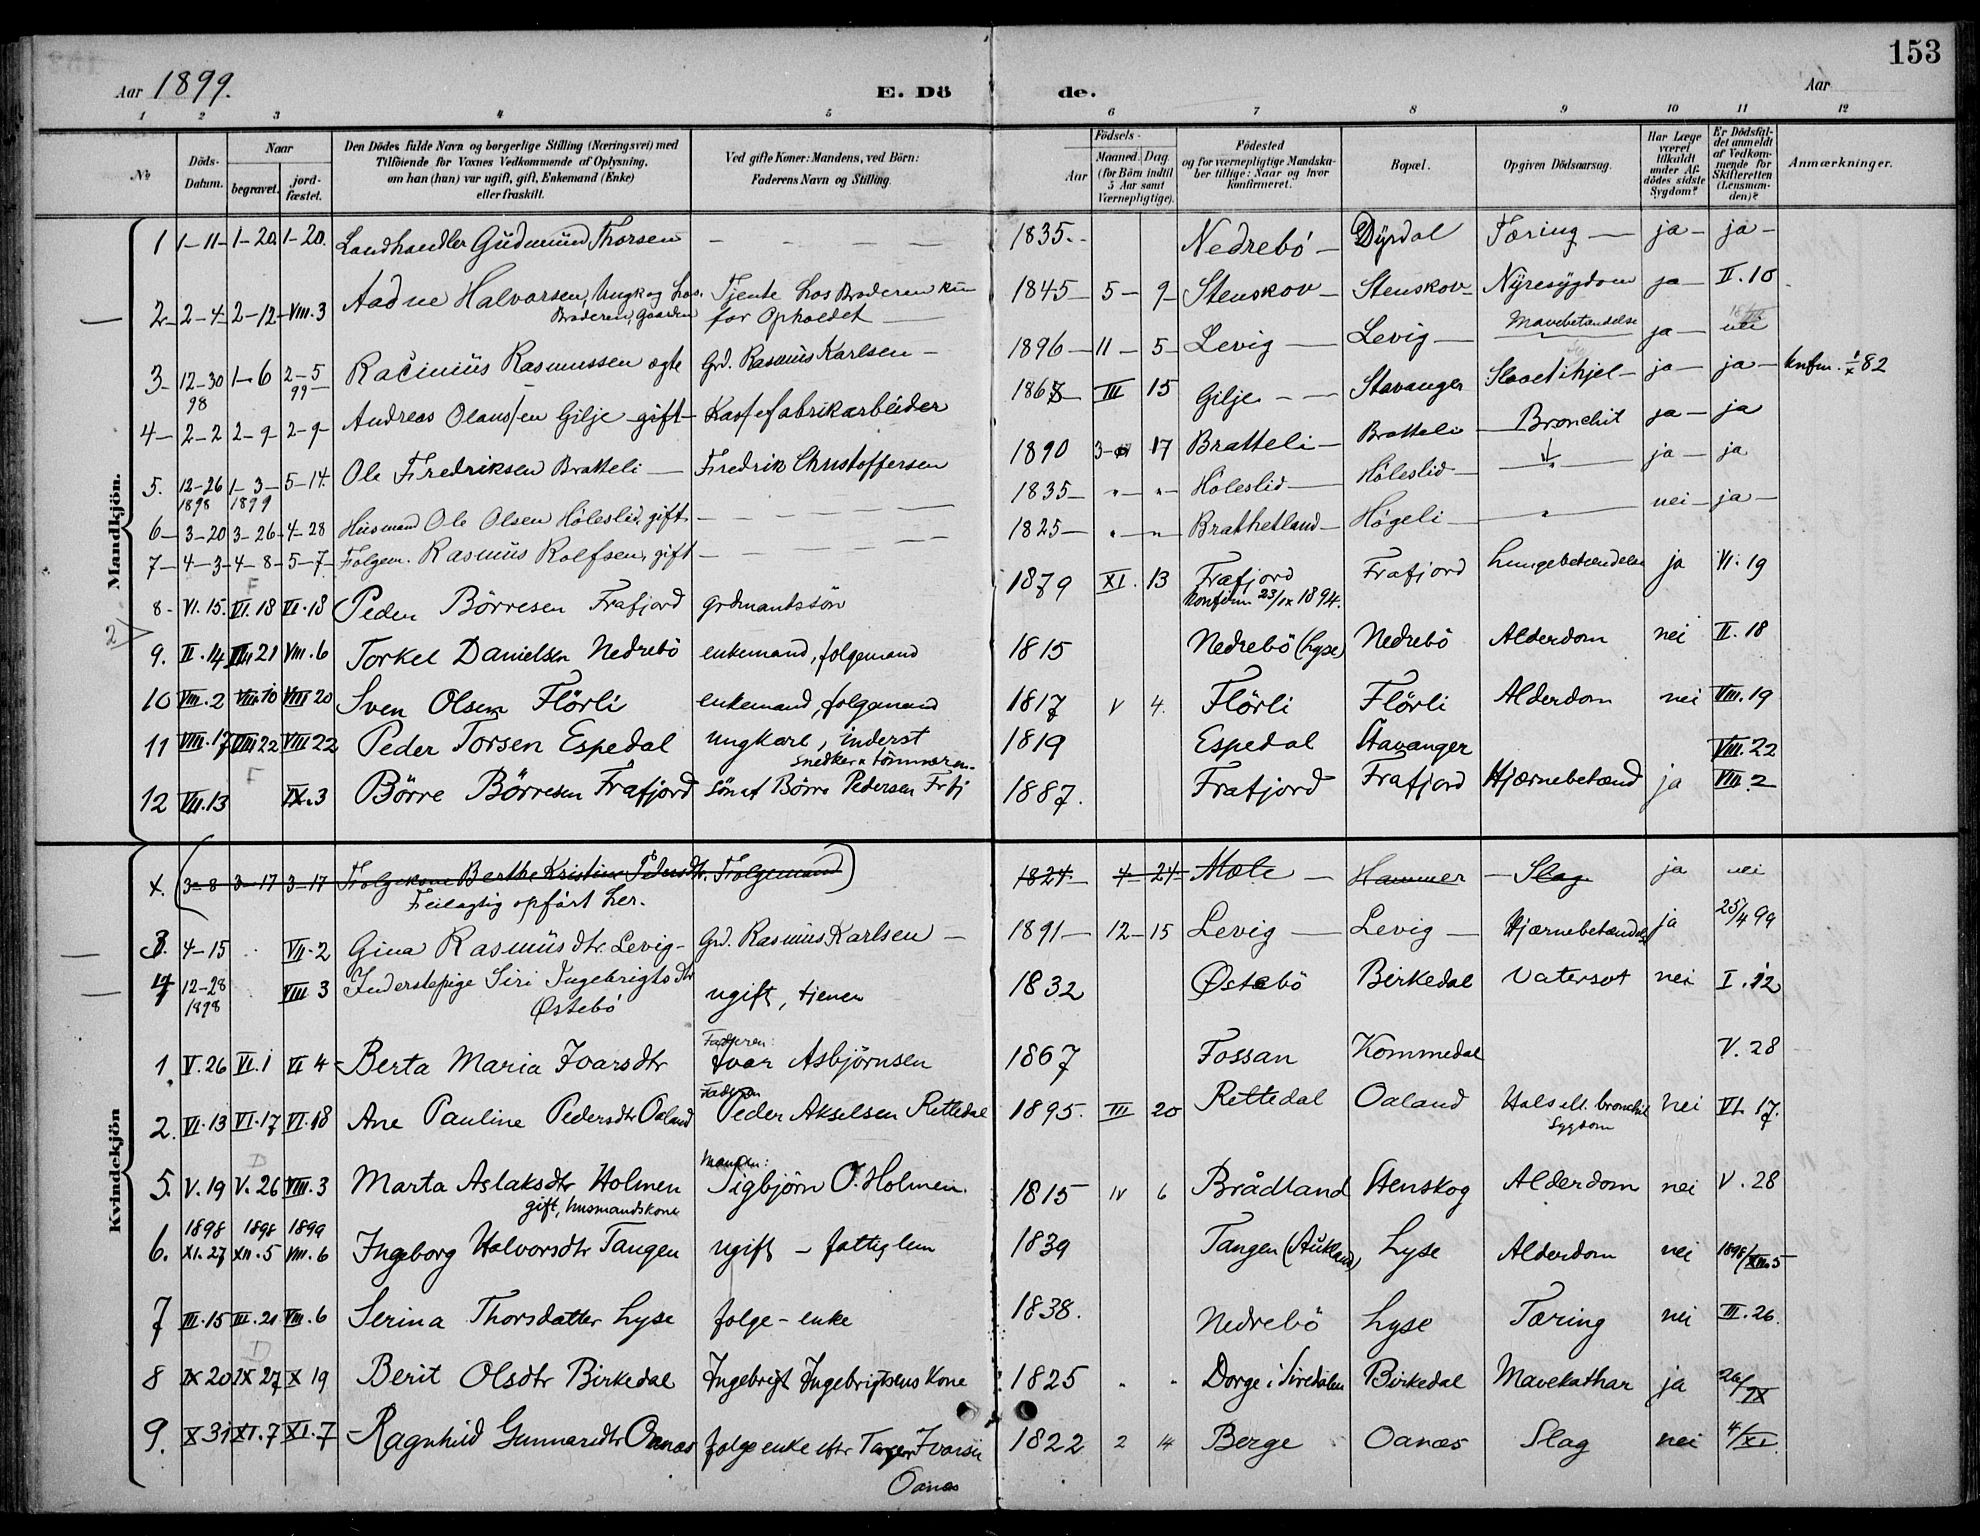 153
Aar 1899. E. Dö de. Aar
1 2 3 4 5 6 7 8 9 10 11 12
No
Döds-Datum.
Naar
begravet.
jord-fæstet.
Den Dödes fulde Navn og borgerlige Stilling (Næringsvei) med
Tilföiende for Voxnes Vedkommende af Oplysning,
om han (hun) var ugift, gift, Enkemand (Enke)
eller fraskilt.
Ved gifte Koner: Mandens, ved Börn:
Faderens Navn og Stilling.
Födsels-
Aar
Maaned. Dag
(for Börn indtil
5 Aar samt
Værnepligtige).
Födested
og for værnepligtige Mandska-
ber tillige: Naar og hvor
konfirmeret.
Bopæl.
Opgiven Dödsaarsag.
Har Læge
været
tilkaldt
under Af-
dödes sidste
Sygdom?
Er Dödsfal-
det anmeldt
af Vedkom-
mende for
Skifteretten
(Lensman-
den)?
Anmærkninger.
Mandkjön.
1 1-11- 1-20. 1-20. Landhandler Gudmund Thorsen — 1835. Nedrebö — Dyrdal Tæring — ja — ja —
2 2-4- 2-12- VIII.3 Aadne Halvorsen, Ungk og hos Broderen, Gaarden Tjente hos Broderen kun for Opholdet — 1845 5 — 9 Stenskov — Stenskov — Nyresygdom ja — II.10
3 12-30 98 1-6 2-5 99 Racinius Rasmussen ægte Grd. Rasmus Karlsen — 1896 — 11 — 5 — Levig — Levig — Mavebetændelse ja — nei
4 2-2 2-9 2-9 Andreas Olaussen Gilje gift — Kassefabrikarbeider 1868 III 15 Gilje — Stavanger Slaaet ihjel — ja — ja — knfm. 1/x 82
5. 12-26 1898 1-3 1899 5-14. Ole Fredriksen Bratteli — Fredrik Christoffersen 1890 3 17 Bratteli — Bratteli — Bronchit ja — ja
6 3-20 3-26 4-28 Husmand Ole Olsen Höleslid, gift. — 1835 — " — " Höleslid — Höleslid — " — ja — ja
7 4-3 4-8 5-7 Folgem. Rasmus Rolfsen, gift — 1825 — " — " Brathetland — Högeli — " — nei — ja —
8- VI.15. VI.18 VI.18 Peder Börresen Frafjord grdmandssön 1879 XI. 13 Frafjord konfirm 23/IX 1894. Frafjord Lungebetændelse ja VI.19
9. II.14 21 VIII.6 Torkel Danielsen Nedrebö enkemand, folgemand 1815 Nedrebö (Lyse) Nedrebö Alderdom nei II.18
10 VIII.2 VIII.10 VIII 20 Sven Olsen Flörli enkemand, folgemand 1817 V 4. Flörli Flörli Alderdom nei VIII.19
11 VIII.17 VIII 22 VIII 22 Peder Torsen Espedal Ungkarl, inderst snedker & tömmerm. 1819 Espedal Stavanger VIII.22
12 VII.13 IX.3 Börre Börresen Frafjord sön af Börre Pedersen Frfj 1887. Frafjord Frafjord Hjærnebetænd ja VIII.2
Kvindekjön
x. (3-8 3-17 3-17 Folgekone Berthe Kristine Pedersdtr. Folgemand) 1824 4 — 24 Mæle — Hammer — Slag ja nei
Feilagtig opfört her.
3. 4-15 VII.2 Gina Rasmusdtr. Levig — Grd. Rasmus Karlsen — 1891 — 12 — 15 Levig — Levig — Hjærnebetændelse ja 25/4 99
4 12-28 1898 VIII 3 Inderstepige Siri Ingebrigtsdtr Østebö ugift, tjener 1832 Østebö Birkedal Vatersot nei I.12
1. V.26 VI.1 VI 4 Berta Maria Ivarsdtr Faderen: Ivar Asbjörnsen 1867 Fossan Kommedal V.28
2. VI.13 VI.17 VI.18 Ane Pauline Pedersdtr Oaland Faderen Peder Akselsen Rettedal 1895. III 20 Rettedal Oaland Hals ell. bronchit Sygdom nei VI.17.
5. V.19 V.26 VIII.3 Marta Aslaksdtr Holmen gift, husmandskone Manden: Sigbjörn O. Holmen. 1815 IV 6 Brådland Stenskog Alderdom nei V.28
6. 1898 XI.27 1898 XII.5 1899 VIII.6 Ingeborg Halvorsdtr Tangen ugift — fattiglem 1839 Tangen (Aukland) Lyse Alderdom nei 1898/XII.5
7 III.15 III.21 VIII.6 Serina Thorsdatter Lyse folge-enke 1838. Nedrebö Lyse Tæring nei III.26.
8 IX 20 IX 27 X 19 Berit Olsdtr Birkedal Ingebrigt Ingebrigtsens Kone 1825 " " Dorge i Siredalen Birkedal Mavekathar ja 26/IX
9. X 31 XI.7 XI.7 Ragnhild Gunnarsdtr Oanæs folge enke efter Tarjer Ivarsen Oanæs 1822 2 14 Berge Oanæs Slag nei 4/XI.